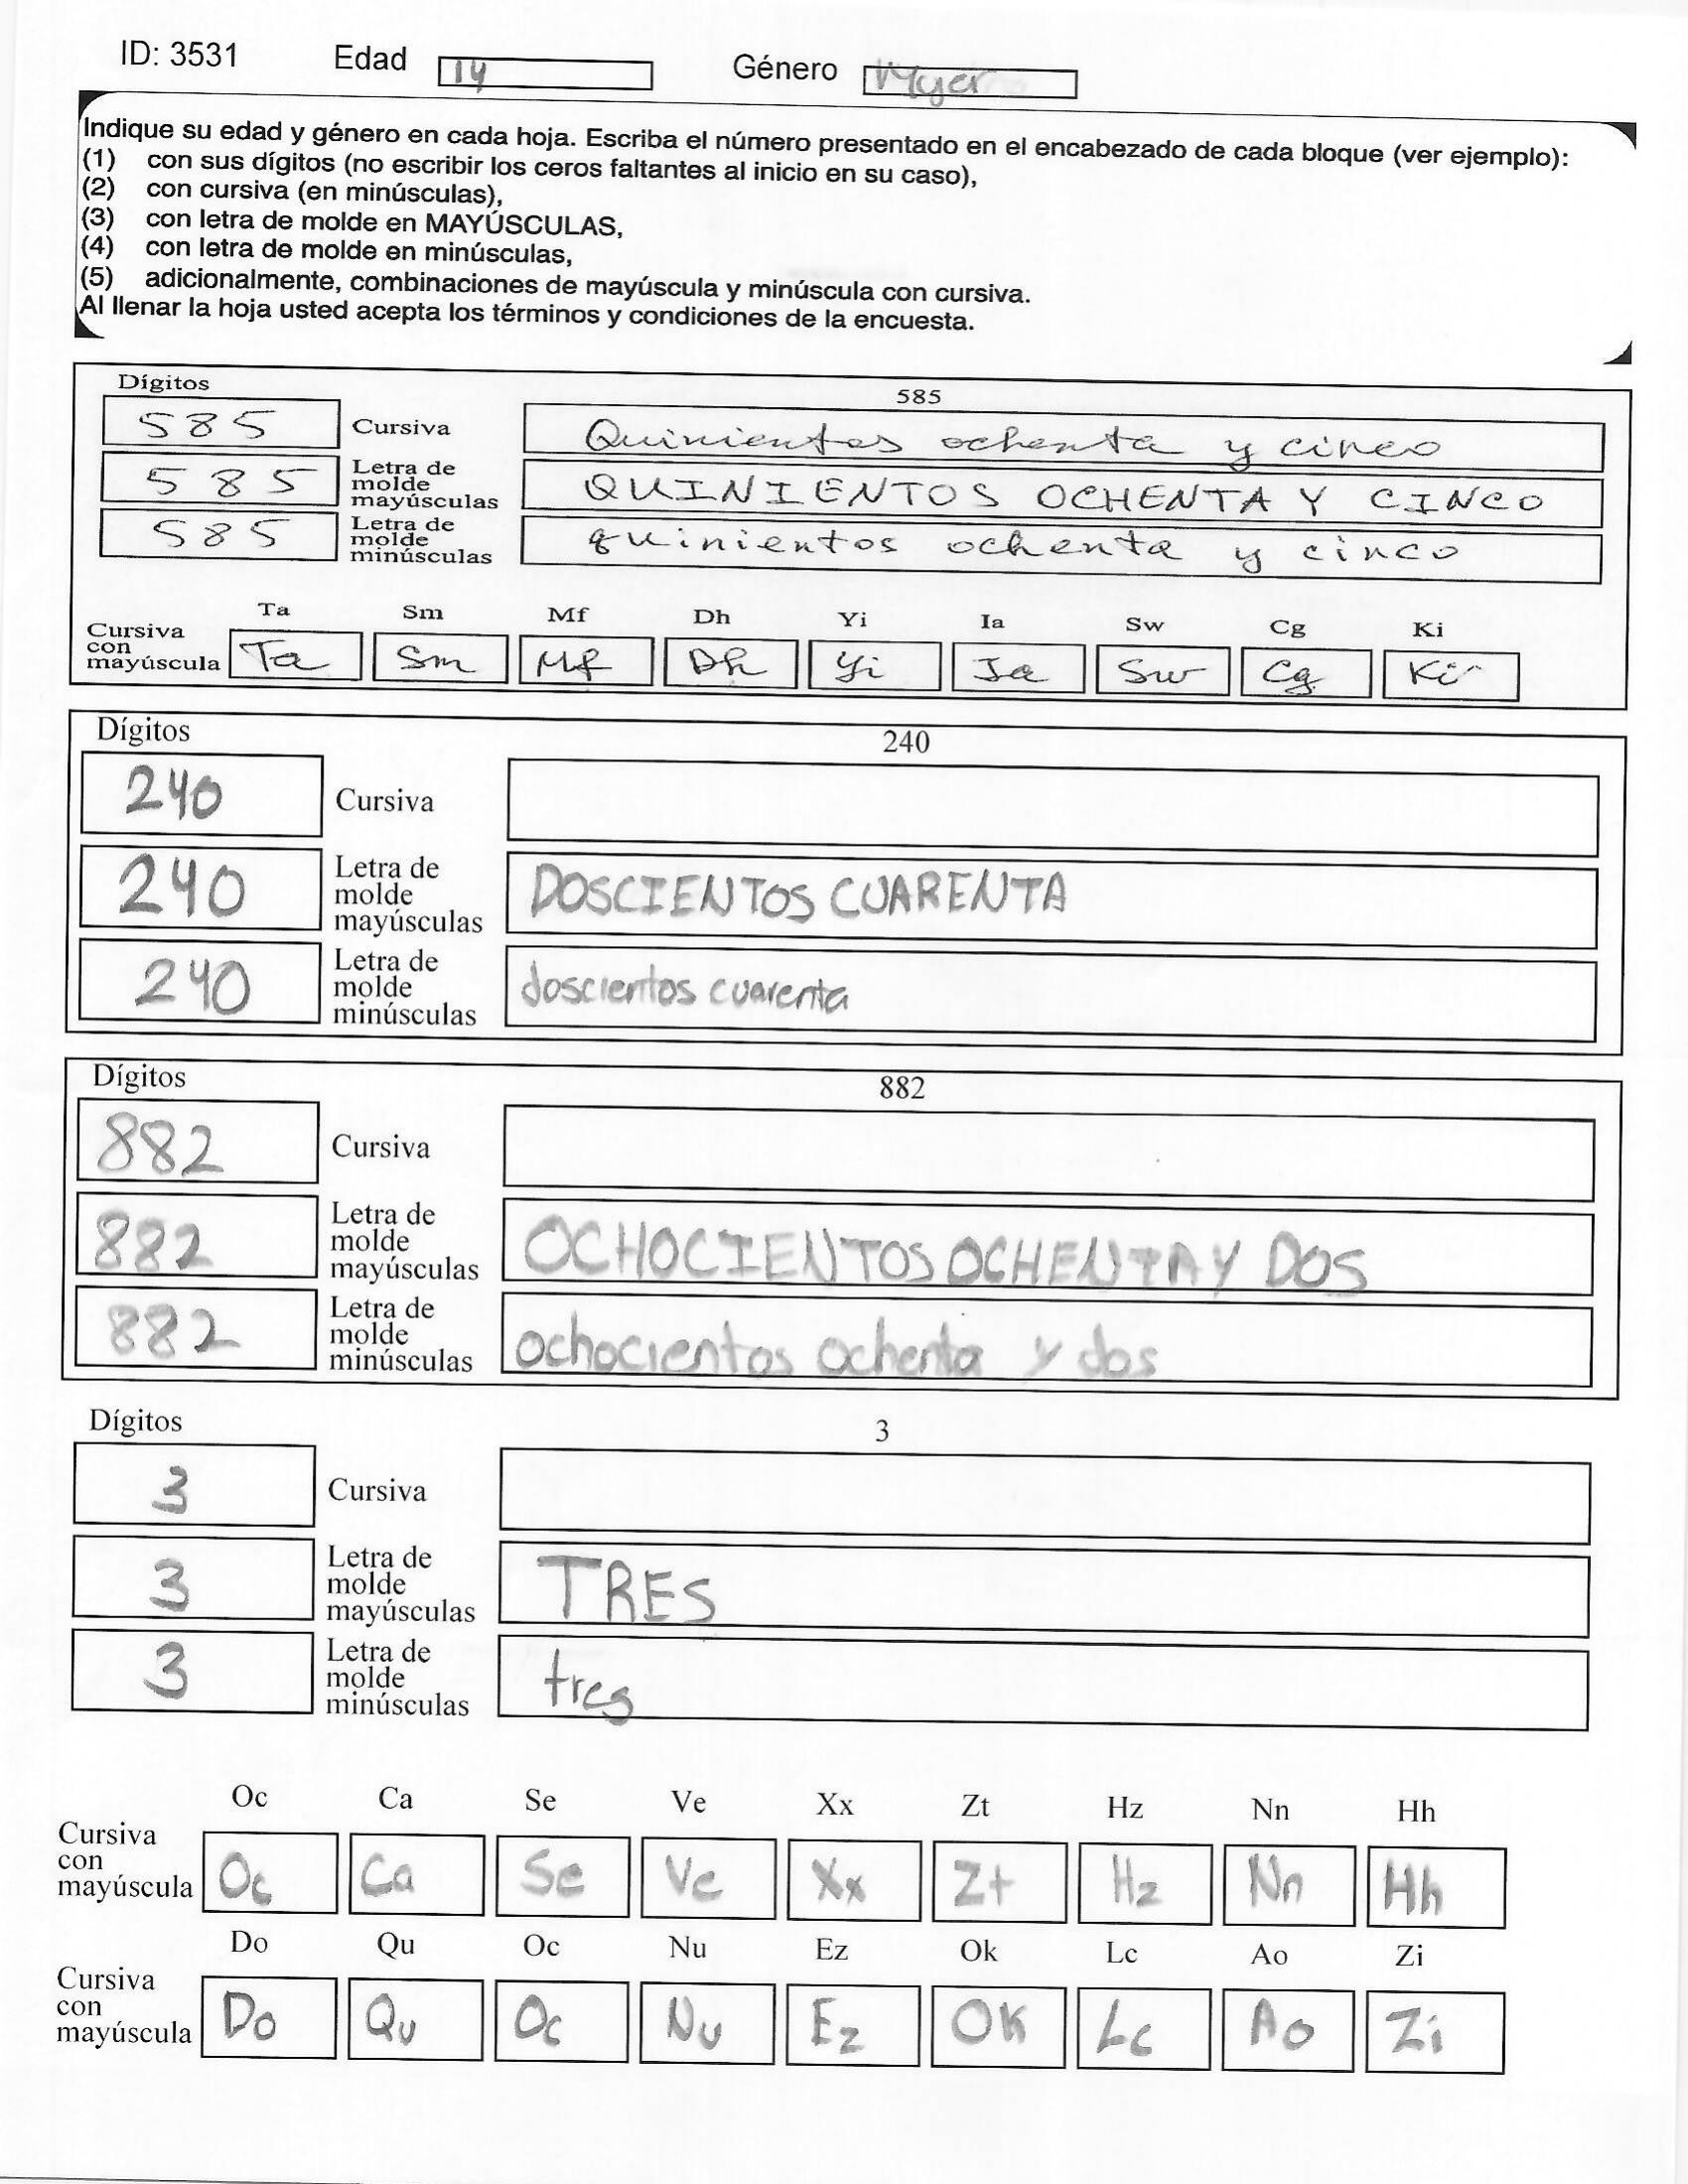 ID: 3531 Edad 14 Género Mujer
Indique su edad y género en cada hoja. Escriba el número presentado en el encabezado de cada bloque (ver ejemplo):
(1) con sus dígitos (no escribir los ceros faltantes al inicio en su caso),
(2) con cursiva (en minúsculas),
(3) con letra de molde en MAYÚSCULAS,
(4) con letra de molde en minúsculas,
(5) adicionalmente, combinaciones de mayúscula y minúscula con cursiva.
Al llenar la hoja usted acepta los términos y condiciones de la encuesta.
Dígitos 585
585 Cursiva Quinientos ochenta y cinco
585 Letra de molde mayúsculas QUINIENTOS OCHENTA Y CINCO
585 Letra de molde minúsculas quinientos ochenta y cinco
Ta Sm Mf Dh Yi Ia Sw Cg Ki
Cursiva con mayúscula Ta Sm Mf Dh Yi Ia Sw Cg Ki
Dígitos 240
240 Cursiva
240 Letra de molde mayúsculas DOSCIENTOS CUARENTA
240 Letra de molde minúsculas doscientos cuarenta
Dígitos 882
882 Cursiva
882 Letra de molde mayúsculas OCHOCIENTOS OCHENTA Y DOS
882 Letra de molde minúsculas ochocientos ochenta y dos
Dígitos 3
3 Cursiva
3 Letra de molde mayúsculas TRES
3 Letra de molde minúsculas tres
Oc Ca Se Ve Xx Zt Hz Nn Hh
Cursiva con mayúscula Oc Ca Se Ve Xx Zt Hz Nn Hh
Do Qu Oc Nu Ez Ok Lc Ao Zi
Cursiva con mayúscula Do Qu Oc Nu Ez OK Lc Ao Zi